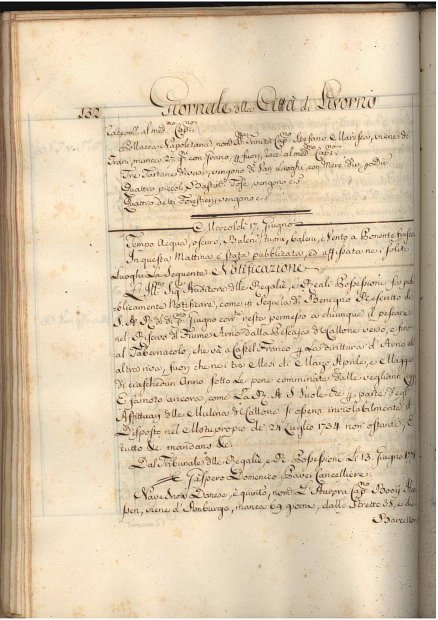 132 Giornale della Città di Livorno
Racom.ti al med.mo Cap.no
Pollacca Napoletana, nom.ta Trinità Cap.no Stefano Maresca, viene di
Trani manca 27. g.i con grano,
Tre Tartane diverse, vengono di Van Luoghi, con Merc.
Quattro piccoli Bast.ti Tosc. vengono c.s.
Quattro detti Forestieri, vengono c.s.
Mercoledì 17. Giugno
Tempo Acqua, oscuro, Baleni, tuoni, e Vento a Ponente fresco
In questa Mattina è stata pubblicata, ed affissata ne i soliti
Luoghi La Seguente Notificazione
L' Ill.mo Sig. Auditore delle Regalie, e Reali Possessioni fa pub
blicamente Notificare, come in Sequela di Benigno Rescritto di
S. A. R. de Giugno corr. resta permesso a chiunque il pescare
nel Fiume Arno dalla Pescaja di Callone verso, e fino
al Tabernacolo, che và a Castel Franco per La dirittura d'Arno all'
altra riva, fuori che nei tre Mesi di Marzo Aprile, e Maggio
di ciaschedun Anno sotto Le pene comminate dalle veglianti Leggi
E fà noto ancora, come La R. A. S. Vuole che per parte degl'
Affittuarj delle Mulina di Callone si osservi inviolabilmente il
Disposto nel Motuproprio de 24 Luglio 1734 non ostante, e
tutto &c. mandano &c.
Dal Tribunale delle Regalie, e R. Possessioni Li 13. Giugno
Gaspero Domenico Paver Cancelliere
Nave Danese, è quinto, nom. L'Aurora Cap.no
viene d'Amburgo, manca 69 giorni, dallo Stretto 38, e da
Barcellon